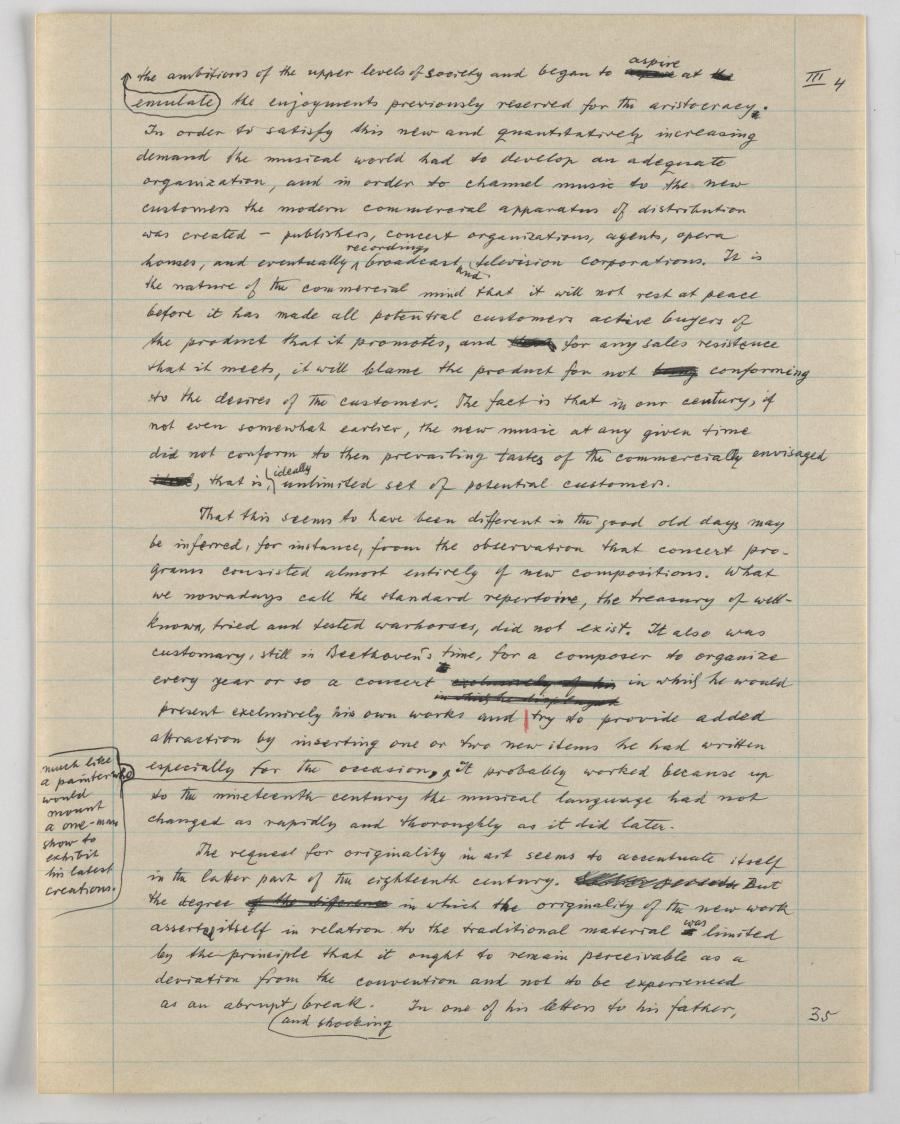 III 4
aspire
the ambitions of the upper levels of society and began to at the
emulate the enjoyments previously reserved for the aristocracy.
In order to satisfy this new and quantitatively increasing
demand the musical world had to develop an adequate
organization, and in order to channel music to the new
customers the modern commercial apparatus of distribution
was created – publishers, concert organizations, agents, opera
recordings
houses, and eventually broadcast, television corporations. It is
and
the nature of the commercial mind that it will not rest at peace
before it has made all potential customers active buyers of
the product that it promotes, and for any sales resistence
that it meets, it will blame the product for not being conforming
to the desires of the customer. The fact is that in our century, if
not even somewhat earlier, the new music at any given time
did not conform to then prevailing tastes of the commercially envisaged
ideally
ideal, that is, unlimited set of potential customers.
That this seems to have been different in the good old days may
be inferred, for instance, from the observation that concert pro-
grams consisted almost entirely of new compositions. What
we nowadays call the standard repertoire, the treasury of well-
known, tried and tested warhorses, did not exist. It also was
customary, still in Beethoven's time, for a composer to organize
every year or so a concert exclusively of his in which he would
in which he displayed
present exclusively his own works and try to provide added
attraction by inserting one or two new items he had written
especially for the occasion, It probably worked because up
to the nineteenth century the musical language had not
changed as rapidly and thoroughly as it did later.
much like
a painter who
would
mount
a one-man
show to
exhibit
his latest
creations.
The request for originality in art seems to accentuate itself
in the latter part of the eighteenth century. But
the degree of the difference in which the originality of the new work
was
asserts itself in relation to the traditional material limited
by the principle that it ought to remain perceivable as a
deviation from the convention and not to be experienced
as an abrupt break. In one of his letters to his father,
and shocking
35